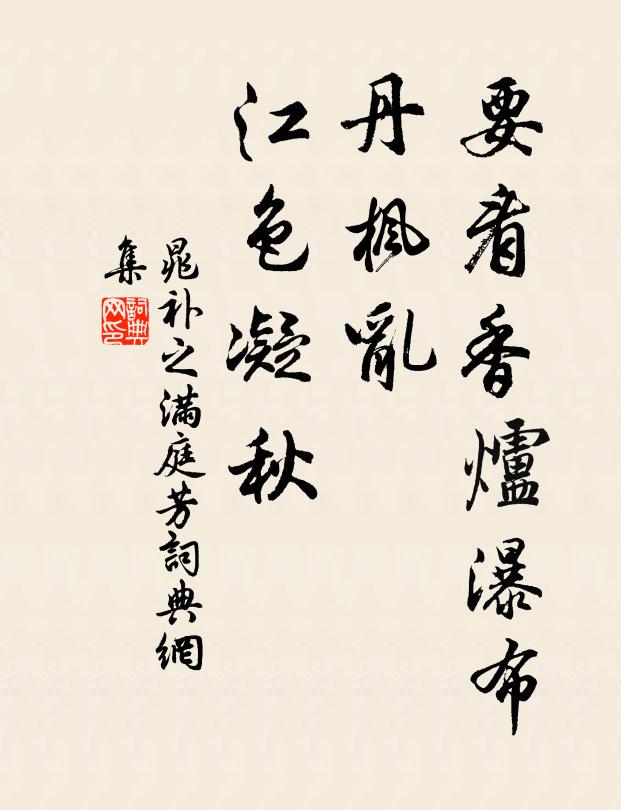 要看香爐瀑布
丹楓亂
江色凝秋
晁补之满庭芳詞典網
集
詞典
网印